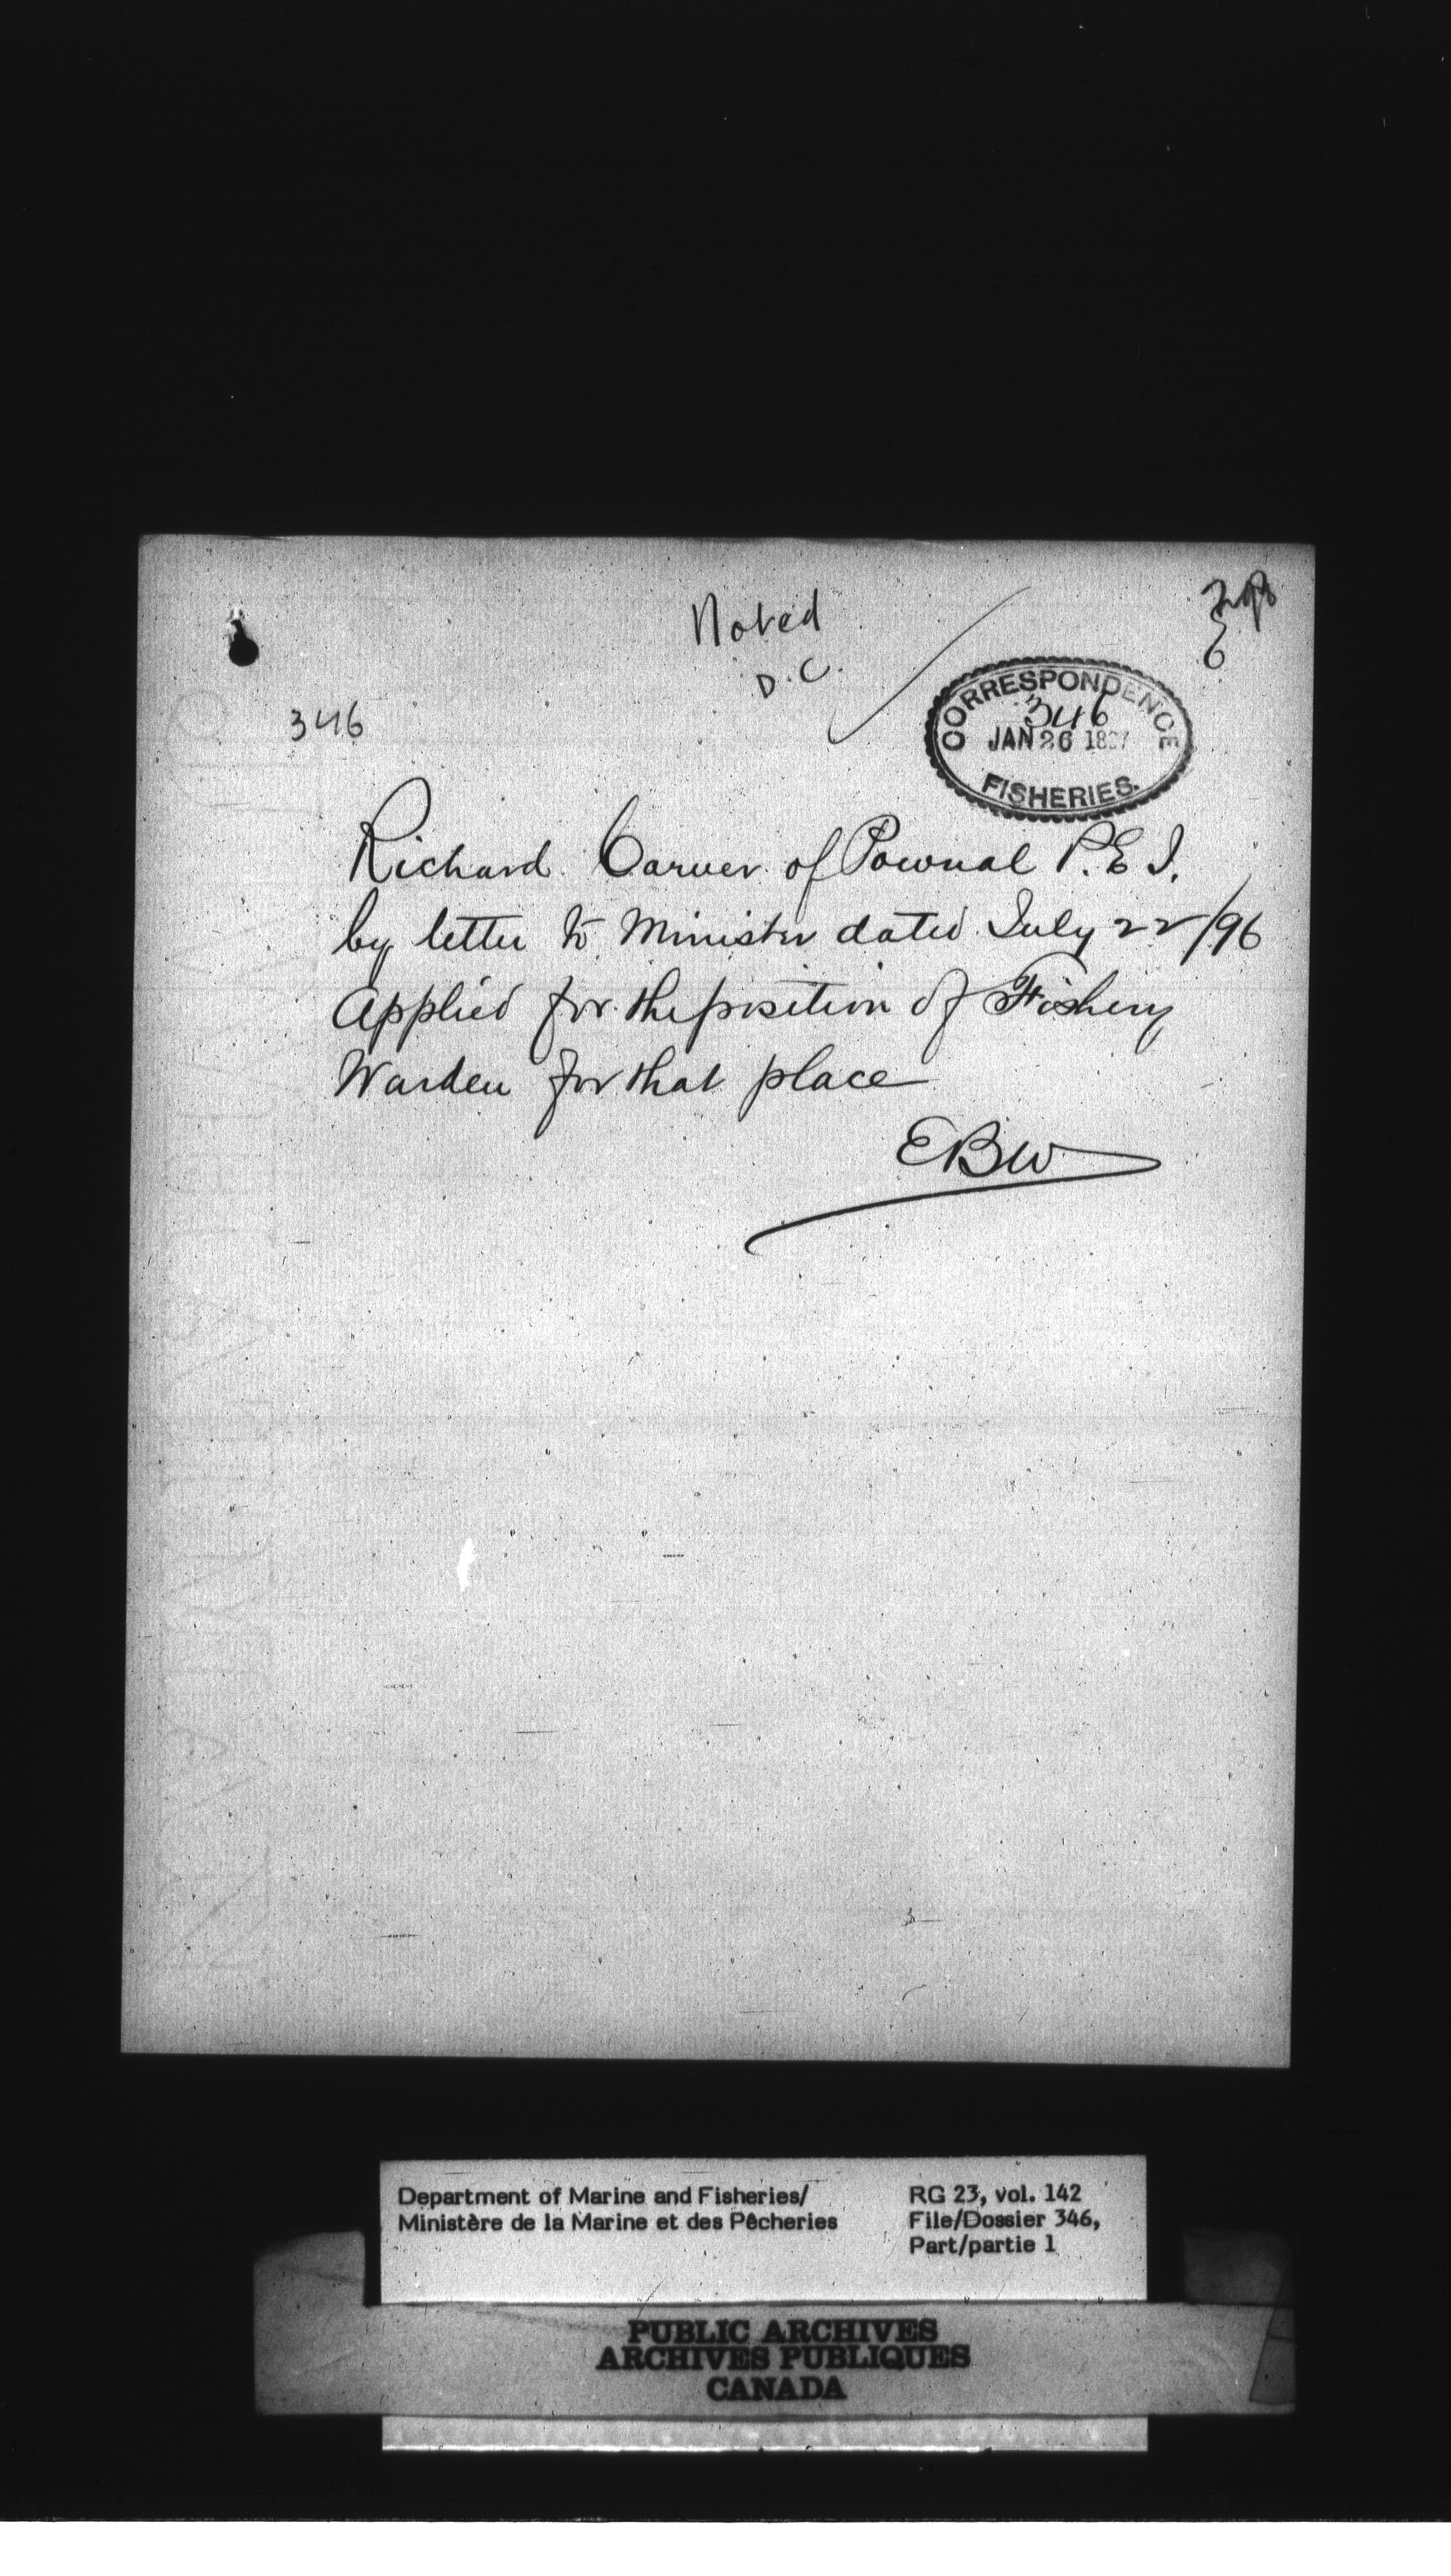 Noted
D.C.
346
CORRESPONDENCE
346
JAN 26 1897
FISHERIES.
Richard Carver of Pownal P.E.I.
by letter to Minister dated July 22/96
Applied for the position of Fishery
Warden for that place
EBW
Department of Marine and Fisheries/
Ministère de la Marine et des Pêcheries
RG 23, vol. 142
File/Dossier 346,
Part/partie 1
PUBLIC ARCHIVES
ARCHIVES PUBLIQUES
CANADA